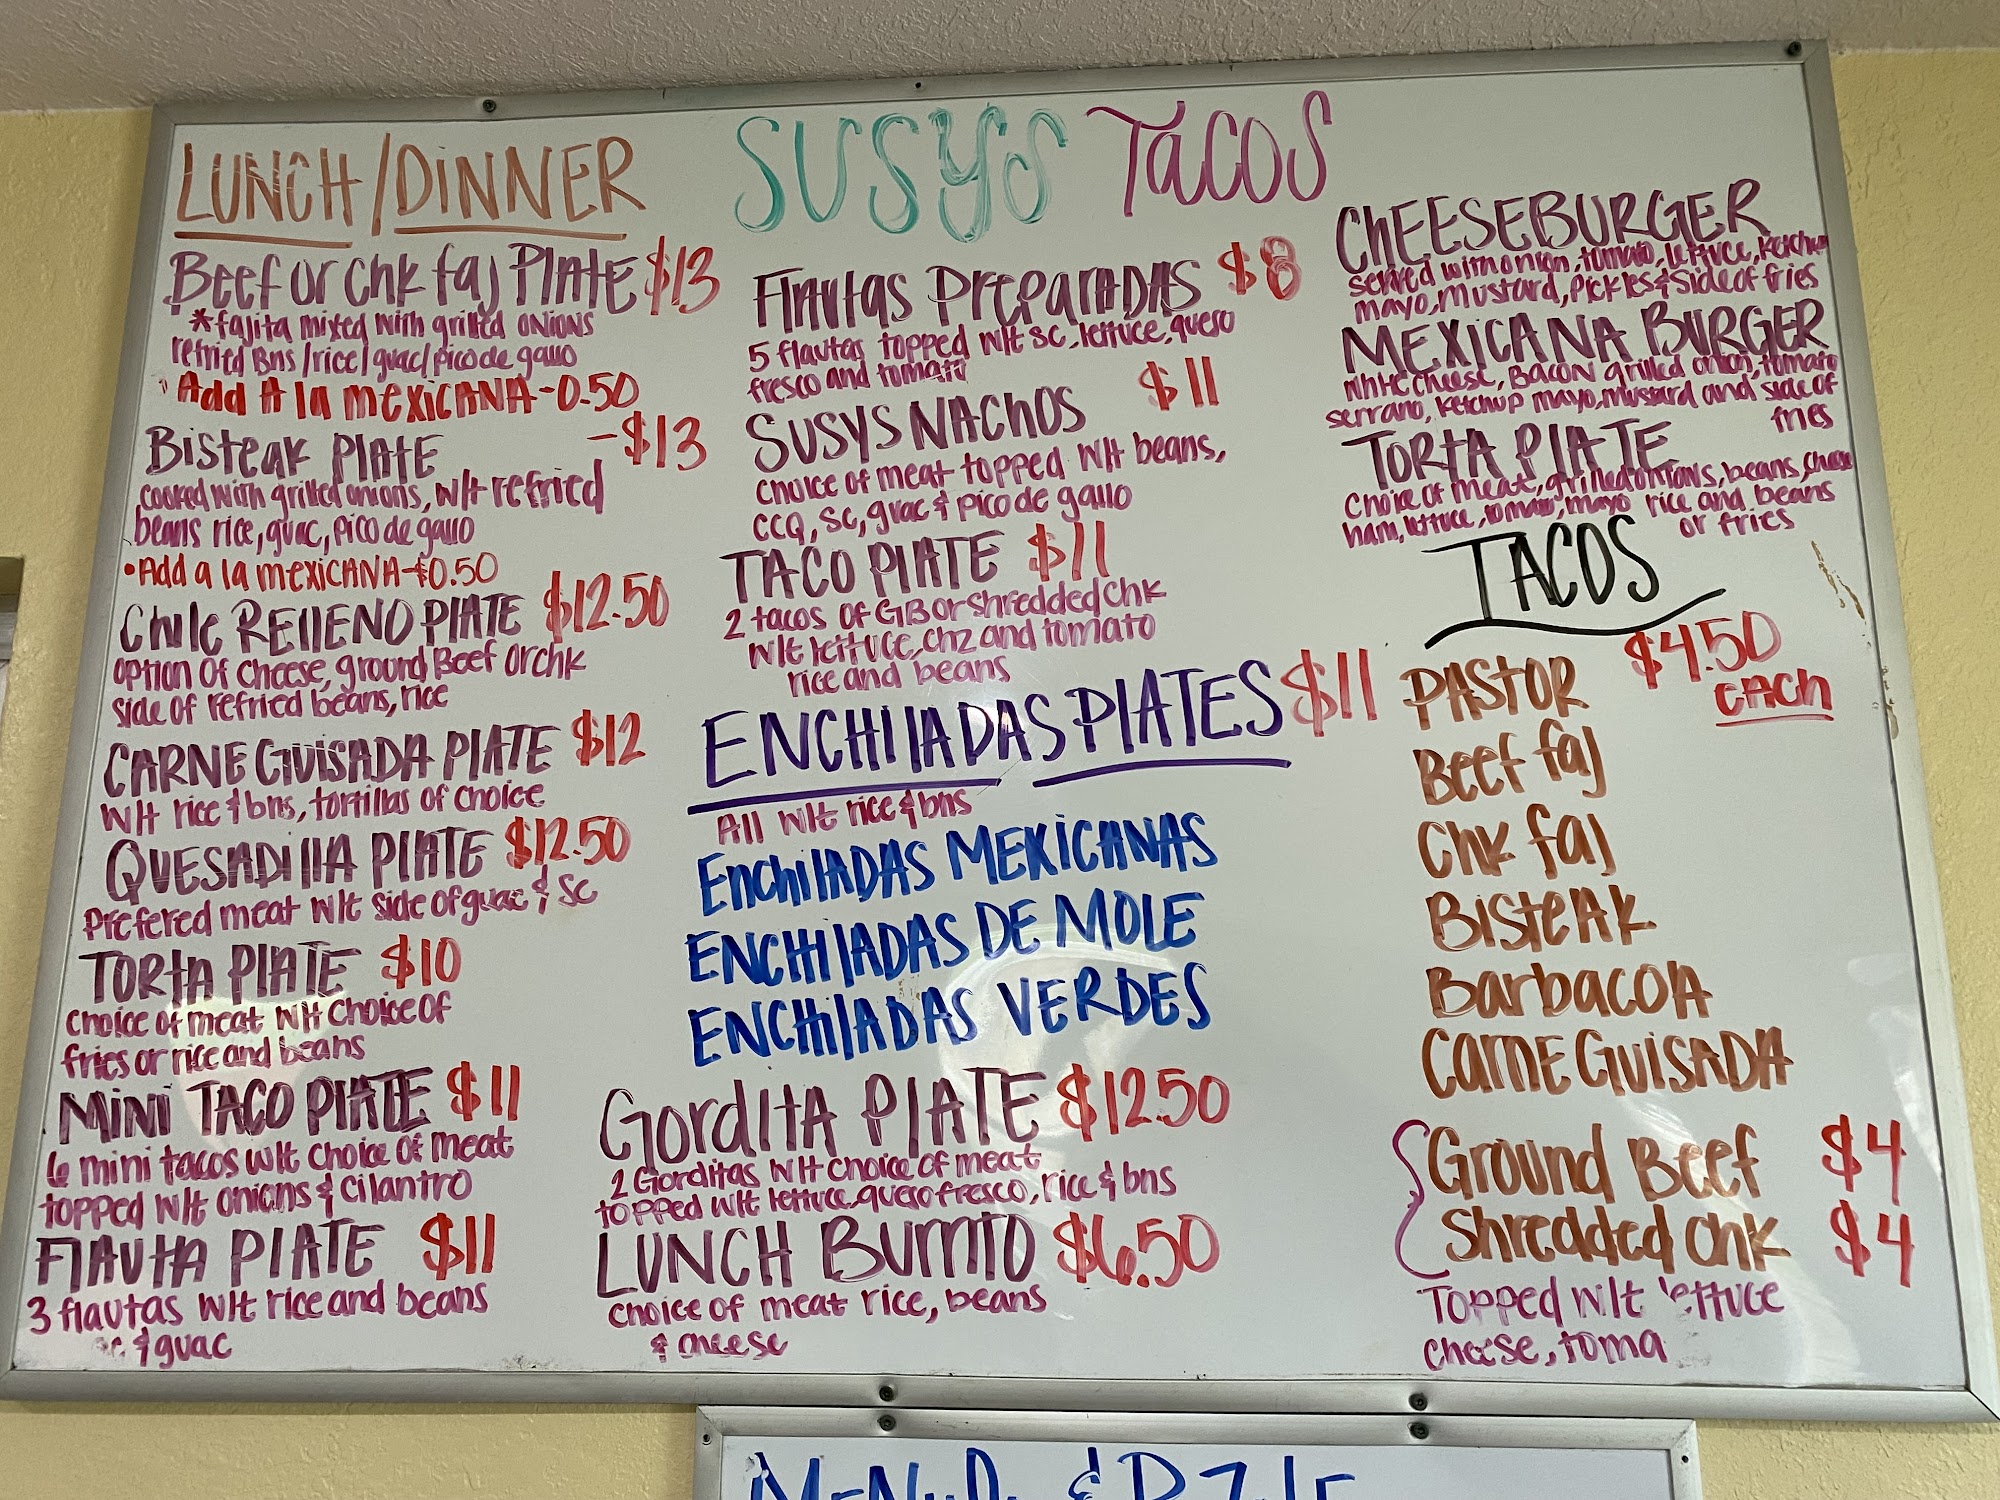 SUSYS TACOS
LUNCH/DINNER
Beef or chk faj PlATE $13
*fajita mixed with grilled onions
refried Bns/rice/guac/pico de gallo
Add A la mexicana-0.50
Bisteak PlAtE -$13
cooked with grilled onions, w/t refried
beans rice, guac, pico de gallo
•Add a la mexicana-$0.50
Chile RellENO PlATE $12.50
option of cheese, ground Beef or chk
side of refried beans, rice
CARNE GUISADA PlATE $12
w/t rice & bns, tortillas of choice
QUESADIllA PlATE $12.50
Prefered meat w/t side of guac & sc
TORTA PlATE $10
choice of meat w/t choice of
fries or rice and beans
MiNi TACO PlATE $11
6 mini tacos w/t choice of meat
topped w/t onions & cilantro
FlAUTA PlATE $11
3 flautas w/t rice and beans
sc & guac
Flautas PrepARADAS $8
5 flautas topped w/t sc, lettuce, queso
fresco and tomato
SUSYS NAChOS $11
choice of meat topped w/t beans,
ccq, sc, guac & pico de gallo
TACO PlATE $11
2 tacos of GB or shredded chk
w/t lettuce, chz and tomato
rice and beans
ENCHIlADAS PlATES $11
All w/t rice & bns
EnchilADAS MEXICANAS
ENCHIlADAS DE MOLE
ENCHIlADAS VERDES
GordITA PlATE $12.50
2 Gorditas w/t choice of meat
topped w/t lettuce, queso fresco, rice & bns
LUNCH BurritO $6.50
choice of meat rice, beans
& cheese
ChEESEBURGER
served with onion, tomato, lettuce, ketchup
mayo, mustard, pickles & side of fries
MEXICANA BURGER
white cheese, Bacon grilled onion, tomato
serrano, ketchup mayo, mustard and side of
fries
TORTA PlATE
choice of meat, grilled onions, beans, cheese
ham, lettuce, tomato, mayo rice and beans
or fries
TACOS
PASTOR $4.50
EACh
Beef faj
Chk faj
BisteAk
BarbacoA
CarnE GuisADA
Ground Beef $4
Shredded Chk $4
Topped w/t lettuce
cheese, toma